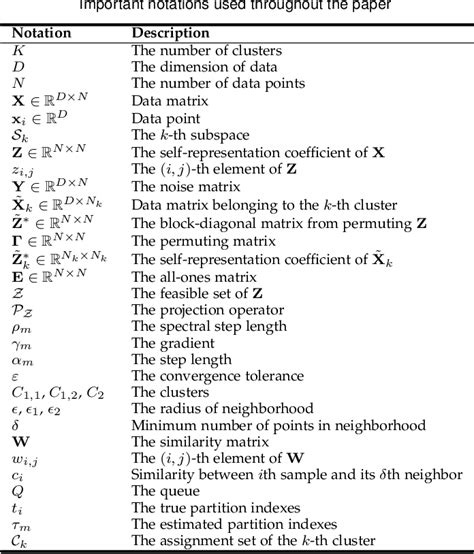 Important notations used throughout the paper
Notation Description
K The number of clusters
D The dimension of data
N The number of data points
X ∈ ℝ^{D×N} Data matrix
x_i ∈ ℝ^D Data point
𝒮_k The k-th subspace
Z ∈ ℝ^{N×N} The self-representation coefficient of X
z_{i,j} The (i, j)-th element of Z
Y ∈ ℝ^{D×N} The noise matrix
X̃_k ∈ ℝ^{D×N_k} Data matrix belonging to the k-th cluster
Z̃* ∈ ℝ^{N×N} The block-diagonal matrix from permuting Z
Γ ∈ ℝ^{N×N} The permuting matrix
Z̃*_k ∈ ℝ^{N_k×N_k} The self-representation coefficient of X̃_k
E ∈ ℝ^{N×N} The all-ones matrix
𝒵 The feasible set of Z
𝒫_𝒵 The projection operator
ρ_m The spectral step length
γ_m The gradient
α_m The step length
ε The convergence tolerance
C_{1,1}, C_{1,2}, C_2 The clusters
ϵ, ϵ_1, ϵ_2 The radius of neighborhood
δ Minimum number of points in neighborhood
W The similarity matrix
w_{i,j} The (i, j)-th element of W
c_i Similarity between ith sample and its δth neighbor
Q The queue
t_i The true partition indexes
τ_m The estimated partition indexes
𝒞_k The assignment set of the k-th cluster